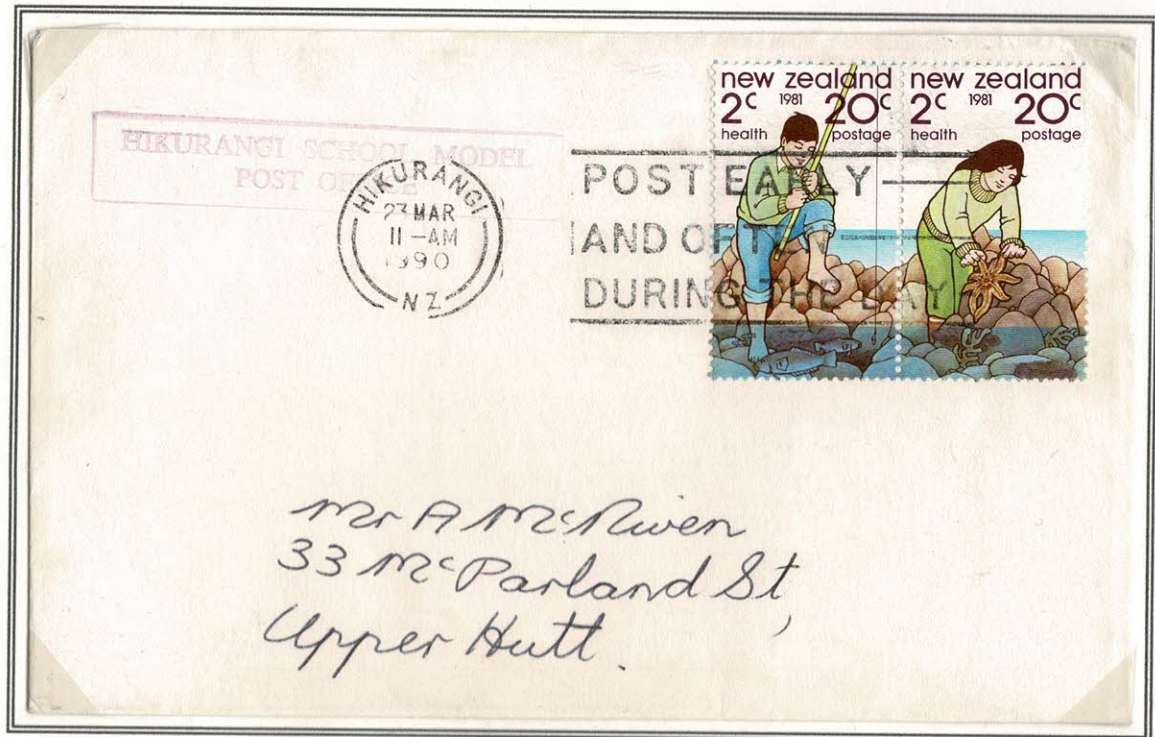 HIKURANGI SCHOOL MODEL
POST OFFICE
HIKURANGI
23 MAR
11-AM
1990
NZ
POST EARLY
AND OFTEN
DURING THE DAY
new zealand
2c 1981 20c
health postage
new zealand
2c 1981 20c
health postage
Mr A McRiven
33 McParland St,
Upper Hutt.